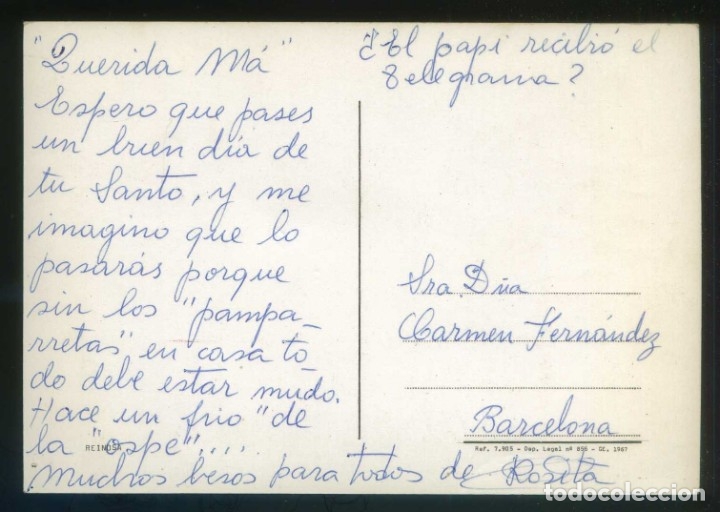 "Querida Má"
Espero que pases
un buen día de
tu Santo, y me
imagino que lo
pasarás porque
sin los "pampa_
rretas" en casa to_
do debe estar mudo.
Hace un frio "de
la "ospe"....
Muchos besos para todos de Rosita
¿El papi recibió el
telegrama?
Sra. Dña
Carmen Fernández
Barcelona
REINOSA
Ref. 7.905 - Dep. Legal nº 856 - CC. 1967
todocoleccion.net